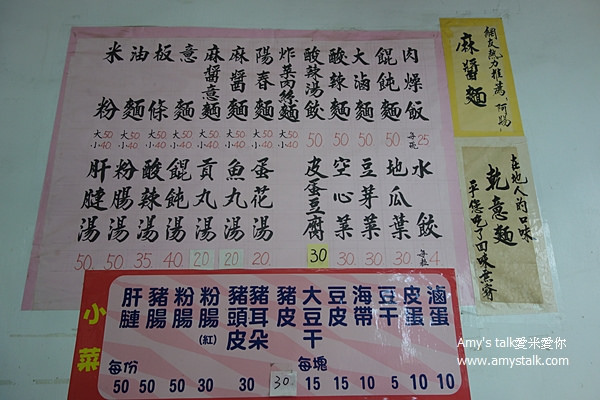 肉燥飯 每碗25
餛飩麵 50
大滷麵 50
酸辣麵 50
酸辣湯餃 50
炸菜肉絲麵 大50 小40
陽春麵 大50 小40
麻醬麵 大50 小40
麻醬意麵 大50 小40
意麵 大50 小40
板條 大50 小40
油麵 大50 小40
米粉 大50 小40
水餃 每粒4
地瓜葉 30
豆芽菜 30
空心菜 30
皮蛋豆腐 30
蛋花湯 20
魚丸湯 20
貢丸湯 20
餛飩湯 40
酸辣湯 35
粉腸湯 50
肝腱湯 50
網友熱力推薦,阿賜,
麻醬麵
在地人的口味
乾意麵
平您吃了回味無窮
小菜
滷蛋 10
皮蛋 10
豆干 5
海帶 10
豆皮 15
大豆干 每塊 15
豬皮 30
豬耳朵 30
豬頭皮 30
粉腸(紅) 30
粉腸 50
豬腸 50
肝腱 每份 50
Amy's talk愛米愛你
www.amystalk.com